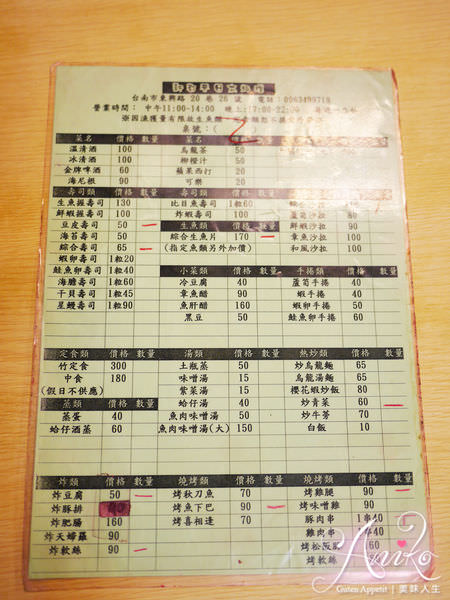 台南市東興路20巷26號 電話：0963499718
營業時間： 中午11:00-14:00 晚上17:00-22:00
桌號：( 2 )
菜名 價格 數量 菜名 價格 數量
溫清酒 100 烏龍茶 50
冰清酒 100 柳橙汁 50
金牌啤酒 60 蘋果西打 20
海尼根 90 可樂 20
壽司類 價格 數量 壽司類 價格 數量
生魚握壽司 130 比目魚壽司 1粒60
鮮蝦握壽司 100 炸蝦壽司 100 蘆筍沙拉 80
豆皮壽司 50 生魚類 價格 數量 鮮蝦沙拉 100
海苔壽司 50 綜合生魚片 170 章魚沙拉 100
綜合壽司 65 (指定魚類另外加價) 和風沙拉 100
蝦卵壽司 1粒20
鮭魚卵壽司 1粒60 小菜類 價格 數量 手捲類 價格 數量
海膽壽司 1粒60 冷豆腐 40 蘆筍手捲 40
干貝壽司 1粒45 章魚醋 90 蝦手捲 50
星鰻壽司 1粒90 魚肝醋 160 蝦卵手捲 50
黑豆 50 鮭魚卵手捲 90
定食類 價格 數量 湯類 價格 數量 熱炒類 價格 數量
竹定食 300 土瓶蒸 50 炒烏龍麵 65
中食 180 味噌湯 15 烏龍湯麵 65
(假日不供應) 紫菜湯 15 櫻花蝦炒飯 80
蒸類 價格 數量 蛤仔湯 40 炒青菜 60
蒸蛋 40 魚肉味噌湯 50 炒牛蒡 70
蛤仔酒蒸 60 魚肉味噌湯(大) 150 白飯 10
炸類 價格 數量 燒烤類 價格 數量 燒烤類 價格 數量
炸豆腐 50 烤秋刀魚 70 烤雞腿 90
炸豚排 烤魚下巴 90 烤味噌雞 90
炸肥腸 160 烤喜相逢 70 豚肉串 1串40
炸天婦羅 90 雞肉串 1串40
炸軟絲 90 烤松阪豚 60
烤軟絲 90
Aniko
Guten Appetit | 美味人生